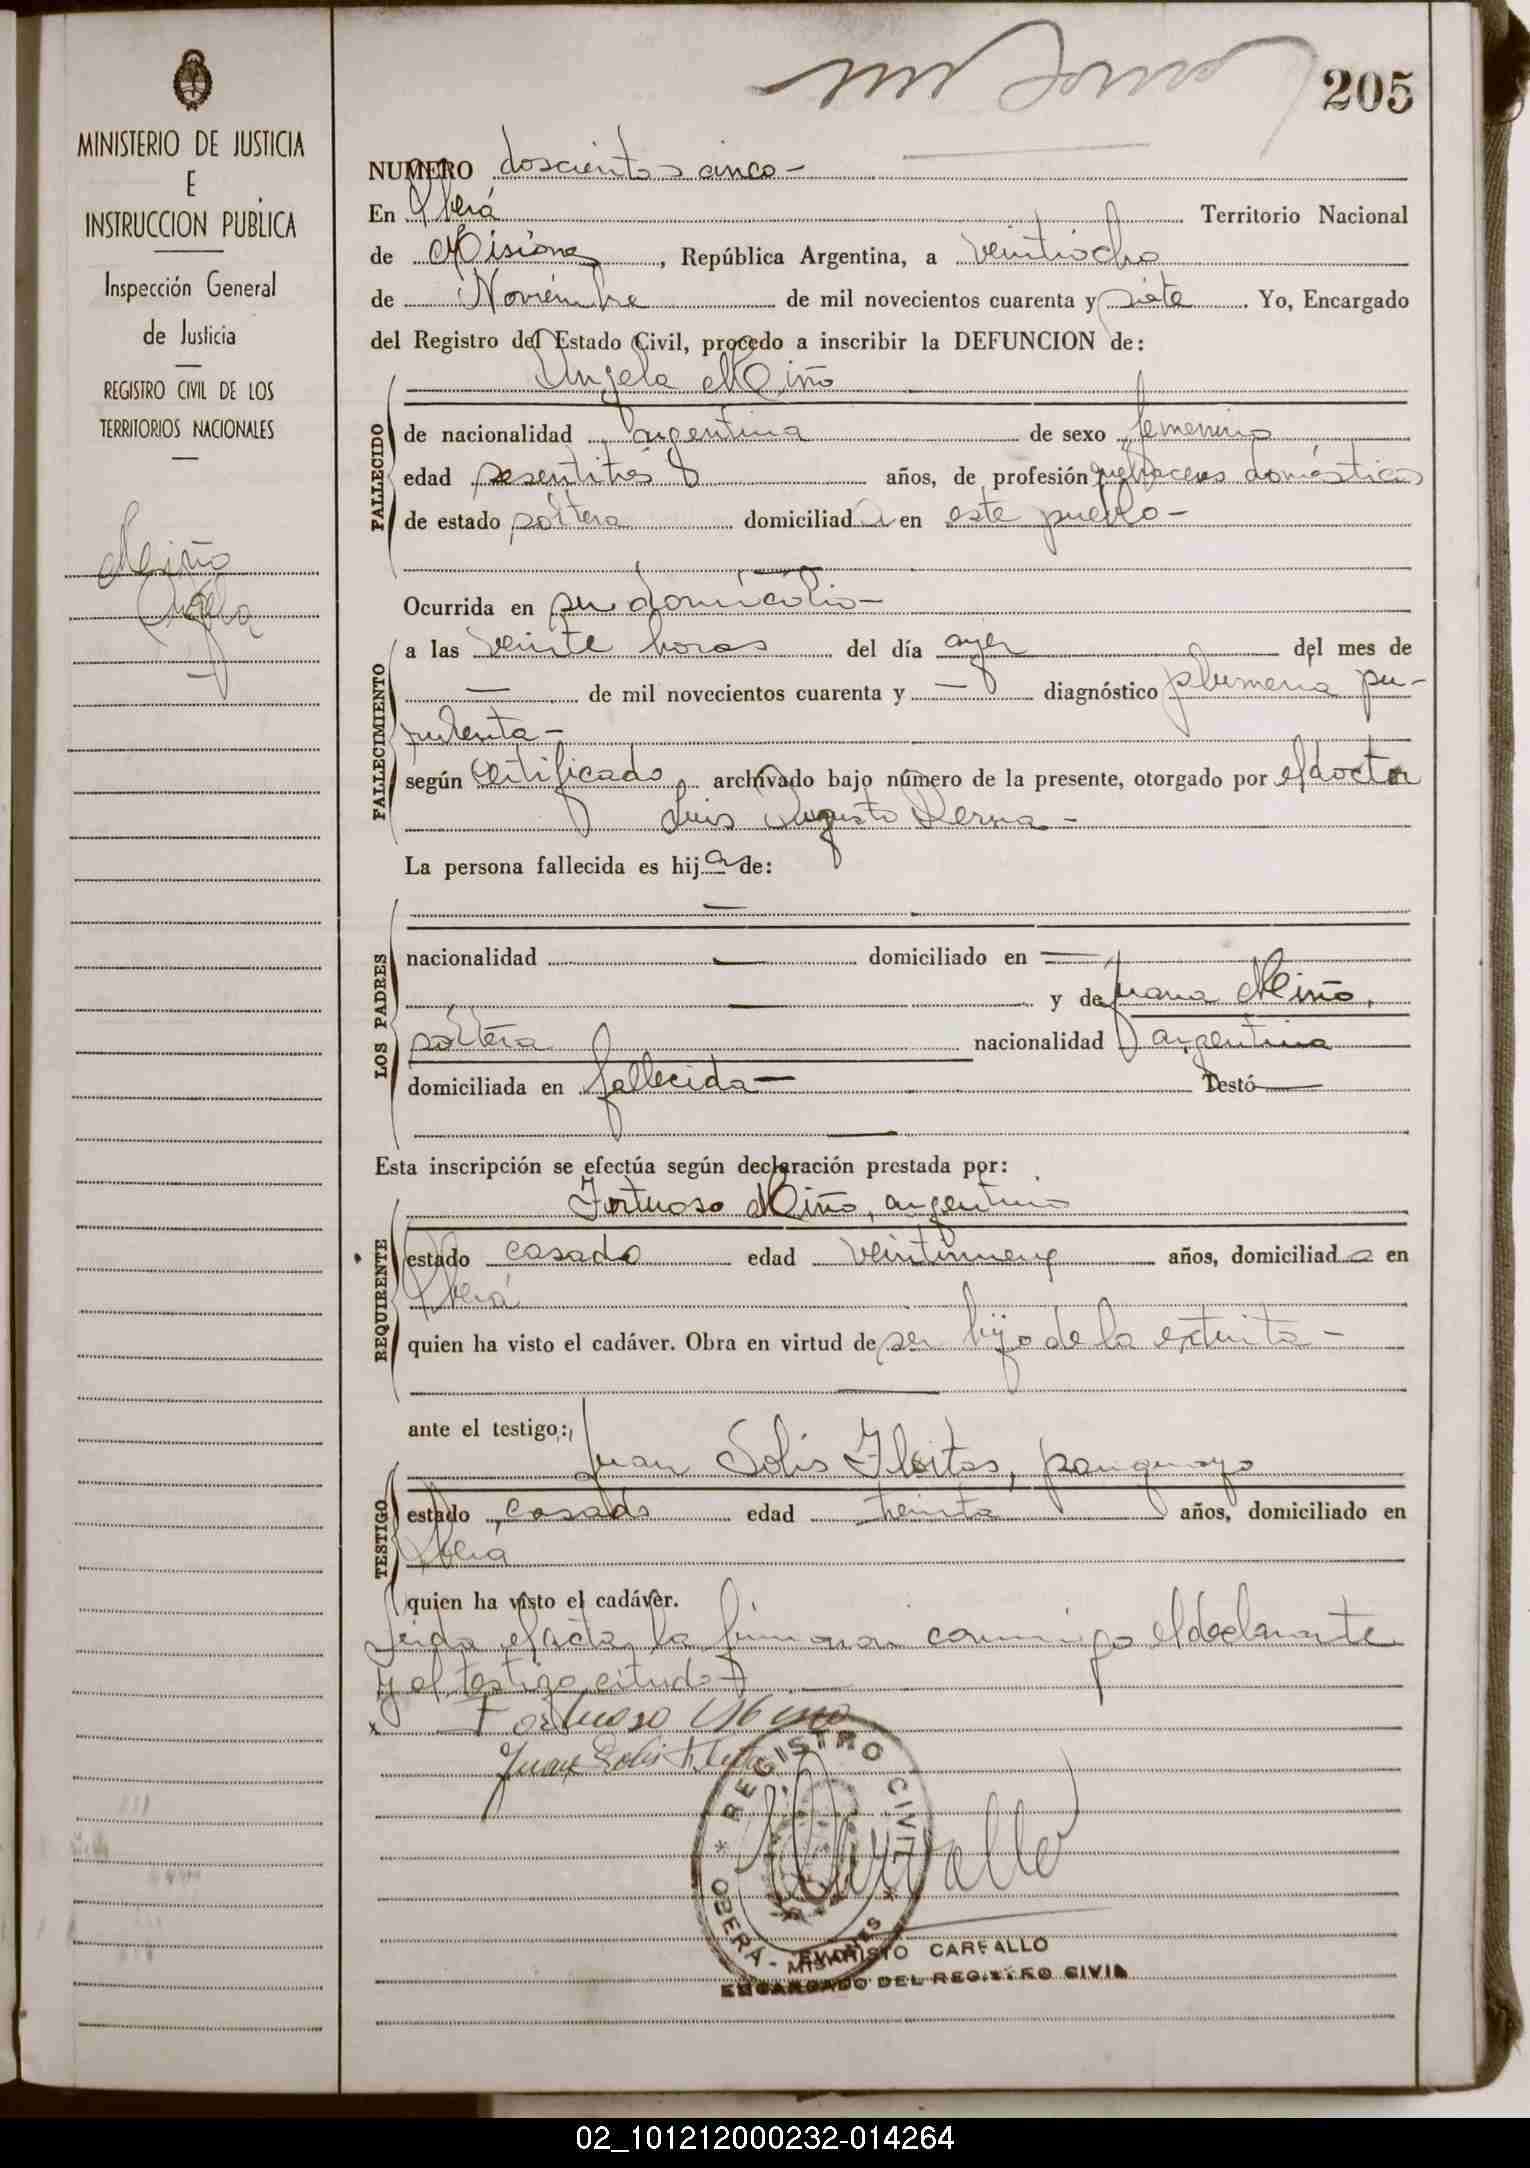 205
MINISTERIO DE JUSTICIA
E
INSTRUCCION PUBLICA
Inspección General
de Justicia
REGISTRO CIVIL DE LOS
TERRITORIOS NACIONALES
Miño
Angela
NUMERO doscientos cinco-
En Oberá Territorio Nacional
de Misiones, República Argentina, a veintiocho
de Noviembre de mil novecientos cuarenta y siete. Yo, Encargado
del Registro del Estado Civil, procedo a inscribir la DEFUNCION de:
Angela Miño
FALLECIDO
de nacionalidad argentina de sexo femenino
edad sesentitrés años, de profesión quehaceres domésticos
de estado soltera domiciliad a en este pueblo-
Ocurrida en su domicilio-
FALLECIMIENTO
a las veinte horas del día ayer del mes de
— de mil novecientos cuarenta y — diagnóstico pu-
rulenta-
según certificado archivado bajo número de la presente, otorgado por el doctor
Luis Augusto Derna-
La persona fallecida es hij a de:
—
LOS PADRES
nacionalidad — domiciliado en —
— y de Juana Miño,
soltera nacionalidad argentina
domiciliada en fallecida— Testó—
Esta inscripción se efectúa según declaración prestada por:
Fortuoso Miño, argentino
REQUIRENTE
estado casado edad veintinueve años, domiciliad o en
Oberá
quien ha visto el cadáver. Obra en virtud de ser hijo de la extinta-
ante el testigo:
Juan Solis Fleitas, paraguayo
TESTIGO
estado casado edad treinta años, domiciliado en
Oberá
quien ha visto el cadáver.
Leida el acta, la firmaron conmigo el declarante
y el testigo citado
x Fortuoso Miño
Juan Solis Fleitas
REGISTRO CIVIL
OBERA - MISIONES
Carvallo
EVARISTO CARFALLO
ENCARGADO DEL REGISTRO CIVIL
02_101212000232-014264